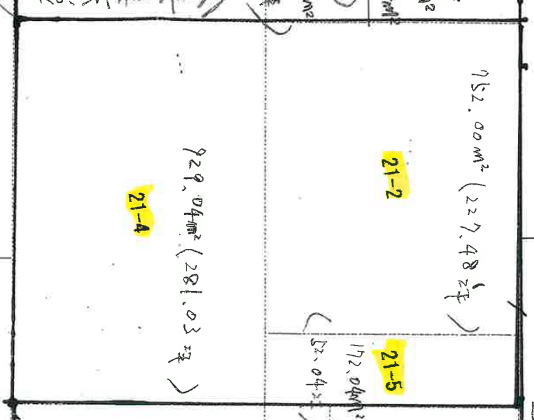 752.00m² (227.48坪)
21-2
21-5
172.04m²
(52.04坪)
929.04m² (281.03坪)
21-4